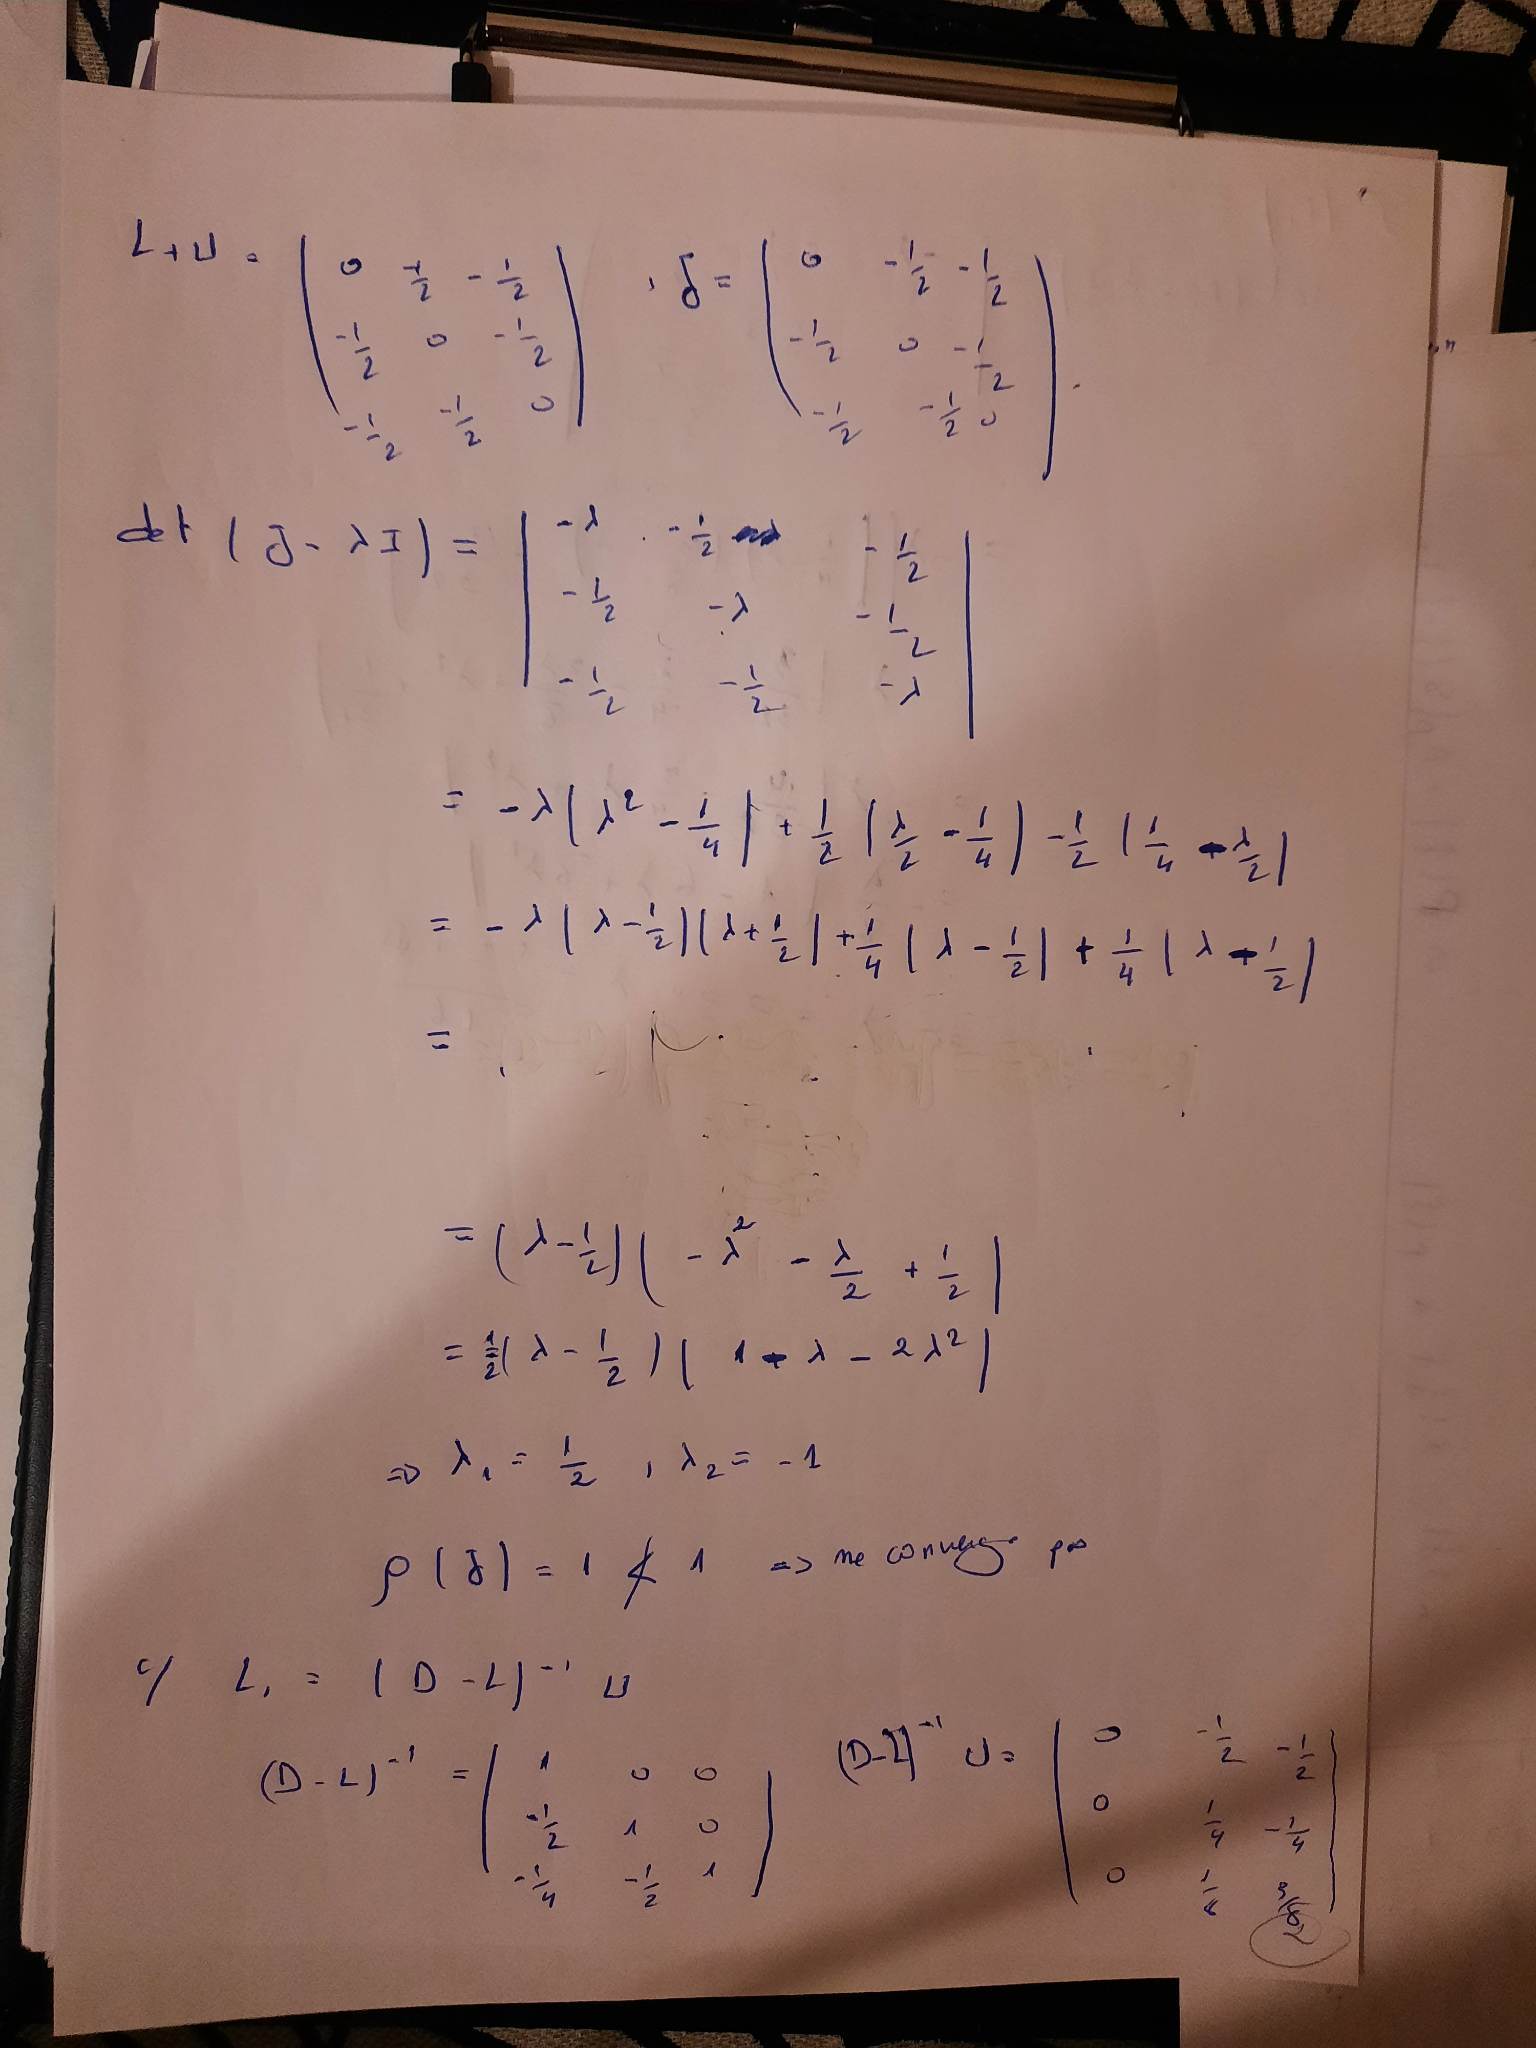 L+U = ( 0 -1/2 -1/2 ; -1/2 0 -1/2 ; -1/2 -1/2 0 ) , J = ( 0 -1/2 -1/2 ; -1/2 0 -1/2 ; -1/2 -1/2 0 ) .
det (J - λI) = | -λ -1/2 -1/2 ; -1/2 -λ -1/2 ; -1/2 -1/2 -λ |
= -λ(λ² - 1/4) + 1/2 (λ/2 - 1/4) - 1/2 (1/4 - λ/2)
= -λ(λ - 1/2)(λ + 1/2) + 1/4 (λ - 1/2) + 1/4 (λ - 1/2)
=
= (λ - 1/2)( -λ² - λ/2 + 1/2 )
= 1/2 (λ - 1/2)( 1 - λ - 2λ² )
=> λ₁ = 1/2 , λ₂ = -1
ρ(J) = 1 ≮ 1 => ne converge pas
c/ L₁ = (D - L)⁻¹ U
(D - L)⁻¹ = ( 1 0 0 ; -1/2 1 0 ; -1/4 -1/2 1 ) (D-L)⁻¹ U = ( 0 -1/2 -1/2 ; 0 1/4 -1/4 ; 0 1/8 3/8 )
2